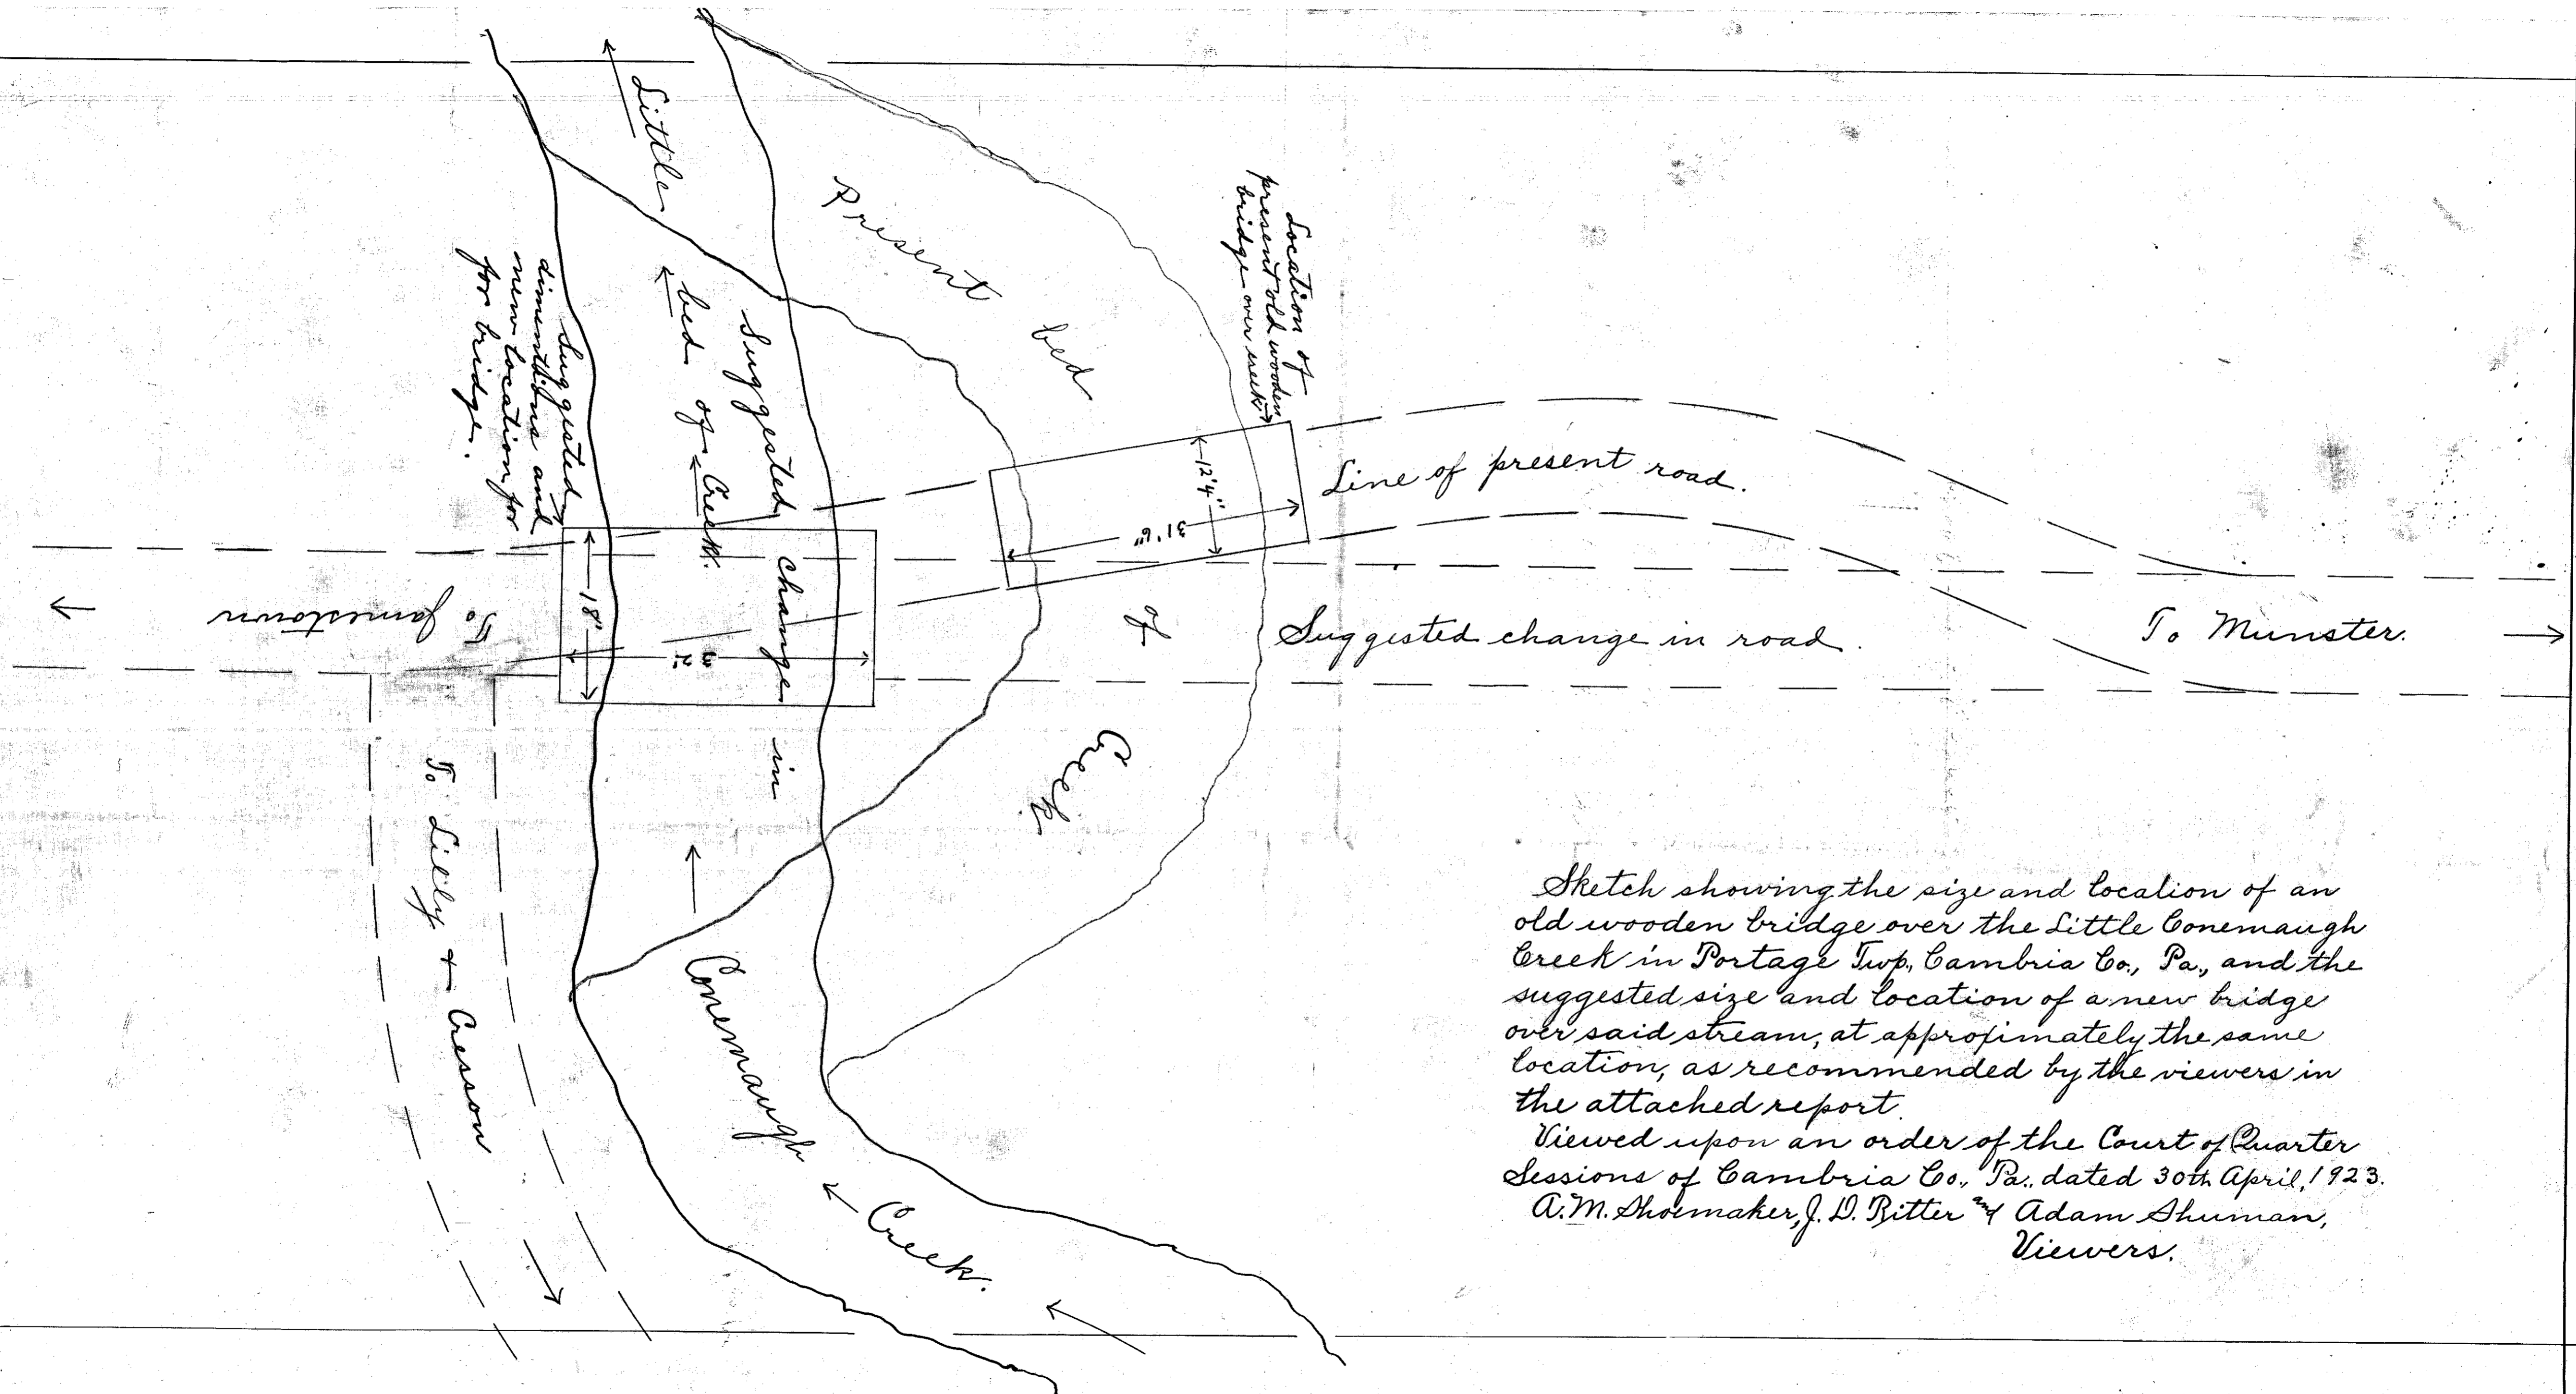 Little
Conemaugh
Creek.
Present bed
of
Creek
Suggested change in
bed of Creek.
Location of
present old wooden
bridge over creek.
Suggested
dimentions and
new location for
for bridge.
12'4"
31'6"
18'
32'
Line of present road.
Suggested change in road.
To Munster.
To Jamestown
To Lilly & Cresson
Sketch showing the size and location of an
old wooden bridge over the Little Conemaugh
Creek in Portage Twp., Cambria Co., Pa., and the
suggested size and location of a new bridge
over said stream, at approximately the same
location, as recommended by the viewers in
the attached report.
Viewed upon an order of the Court of Quarter
Sessions of Cambria Co., Pa., dated 30th April, 1923.
A. M. Shoemaker, J. D. Ritter and Adam Shuman,
Viewers.